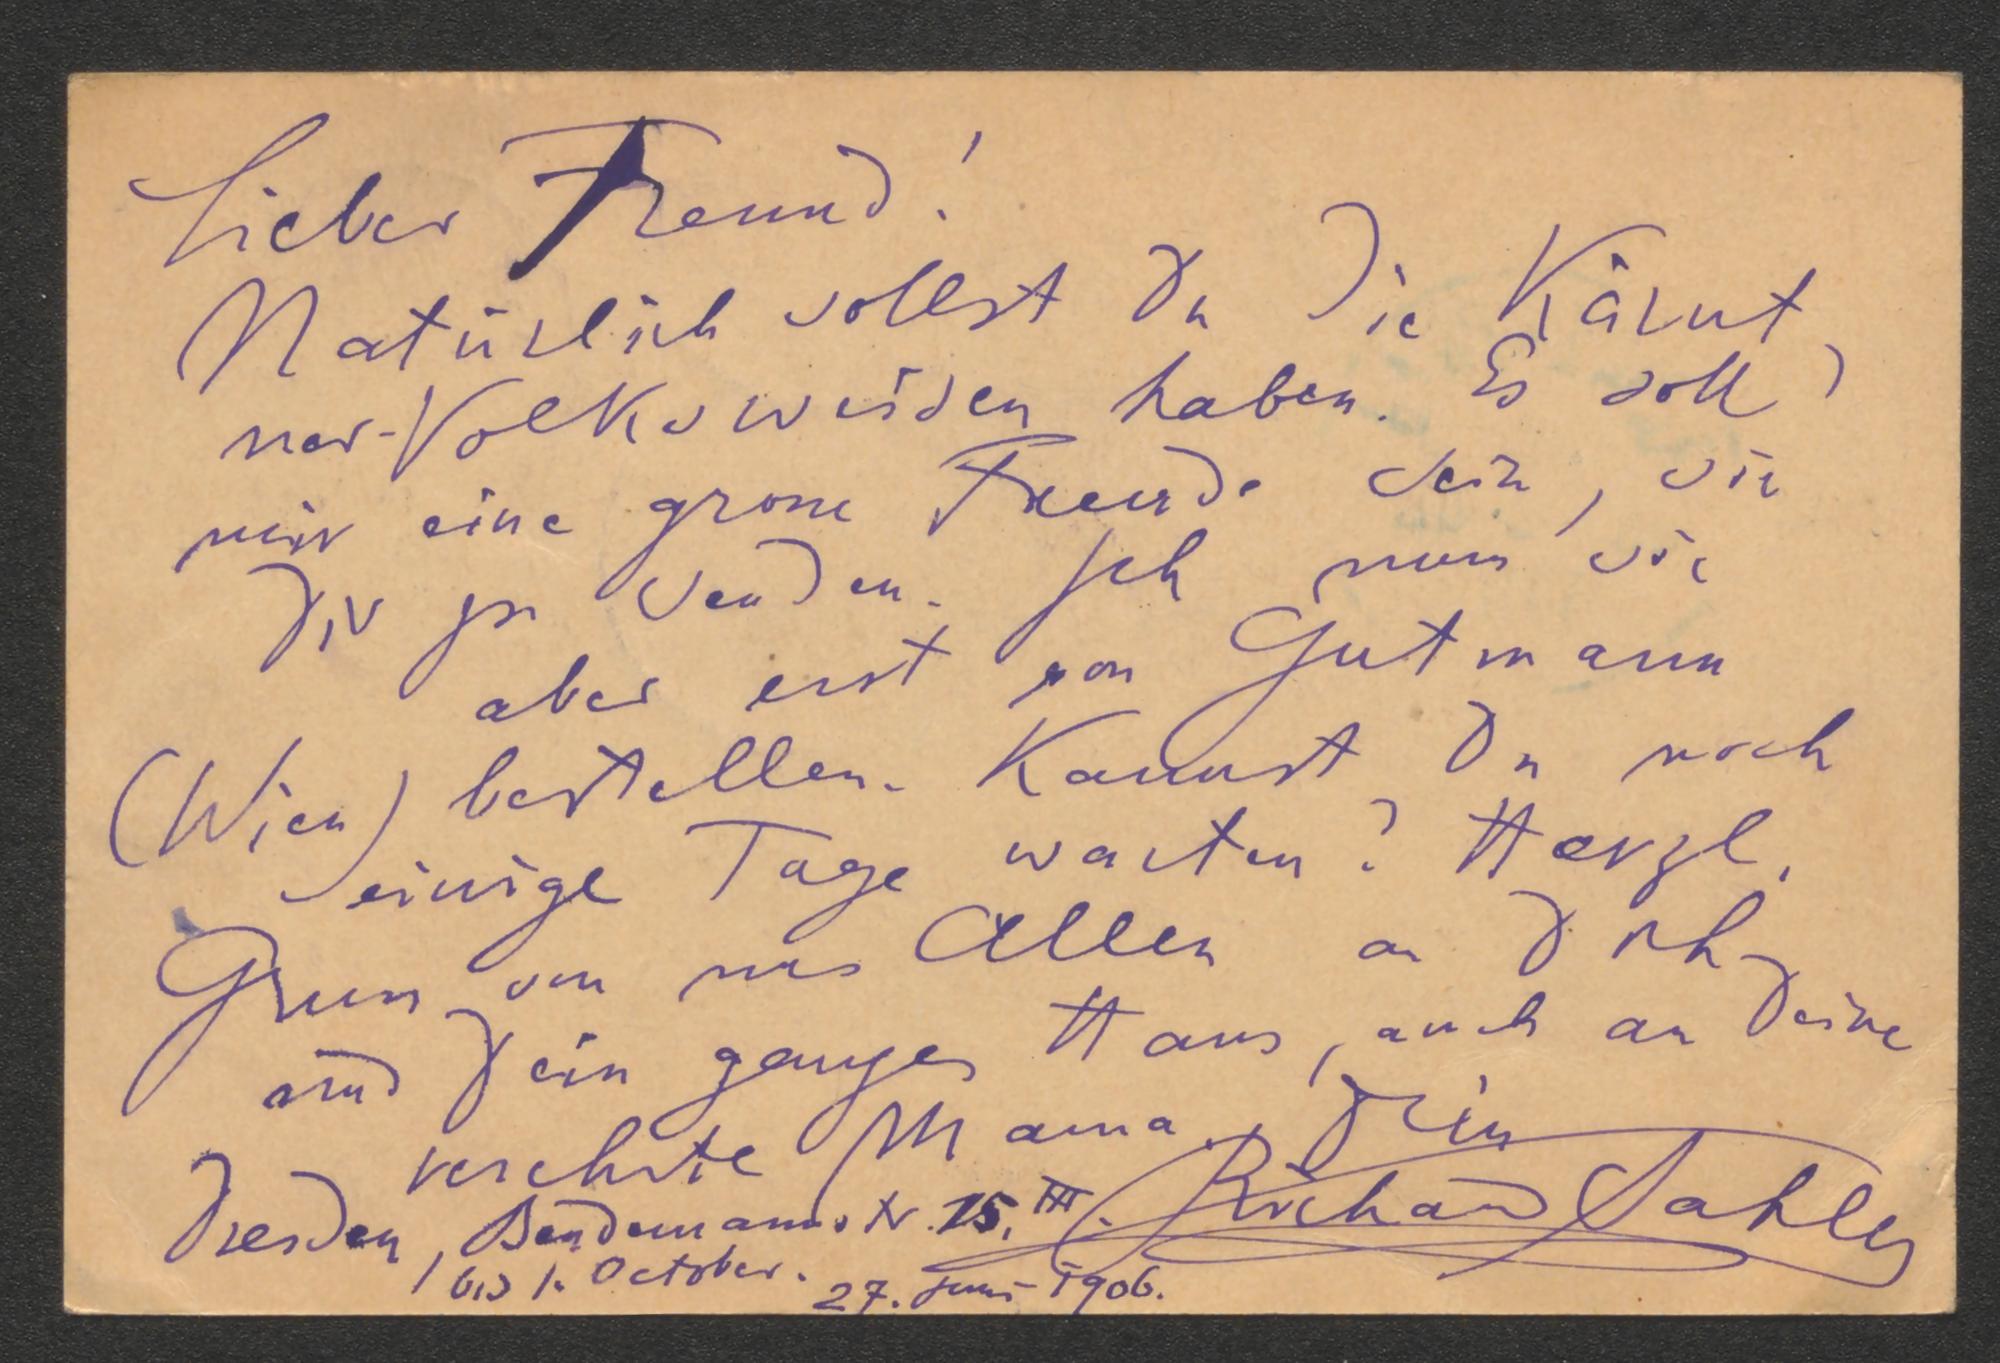 Lieber Freund!
Natürlich sollst Du die Kärnt
ner-Volksweisen haben. Es soll
mir eine grosse Freude sein, sie
Dir zu senden. Ich muss sie
aber erst von Gutmann
(Wien) bestellen. Kannst Du noch
einige Tage warten? Herzl.
Gruss von uns Allen an Dich
und Dein ganzes Haus, auch an Deine
verehrte Mama. Dein
Richard Sahla
Dresden, Bendemannstr. 15, III.
bis 1. October. 27. Juni 1906.